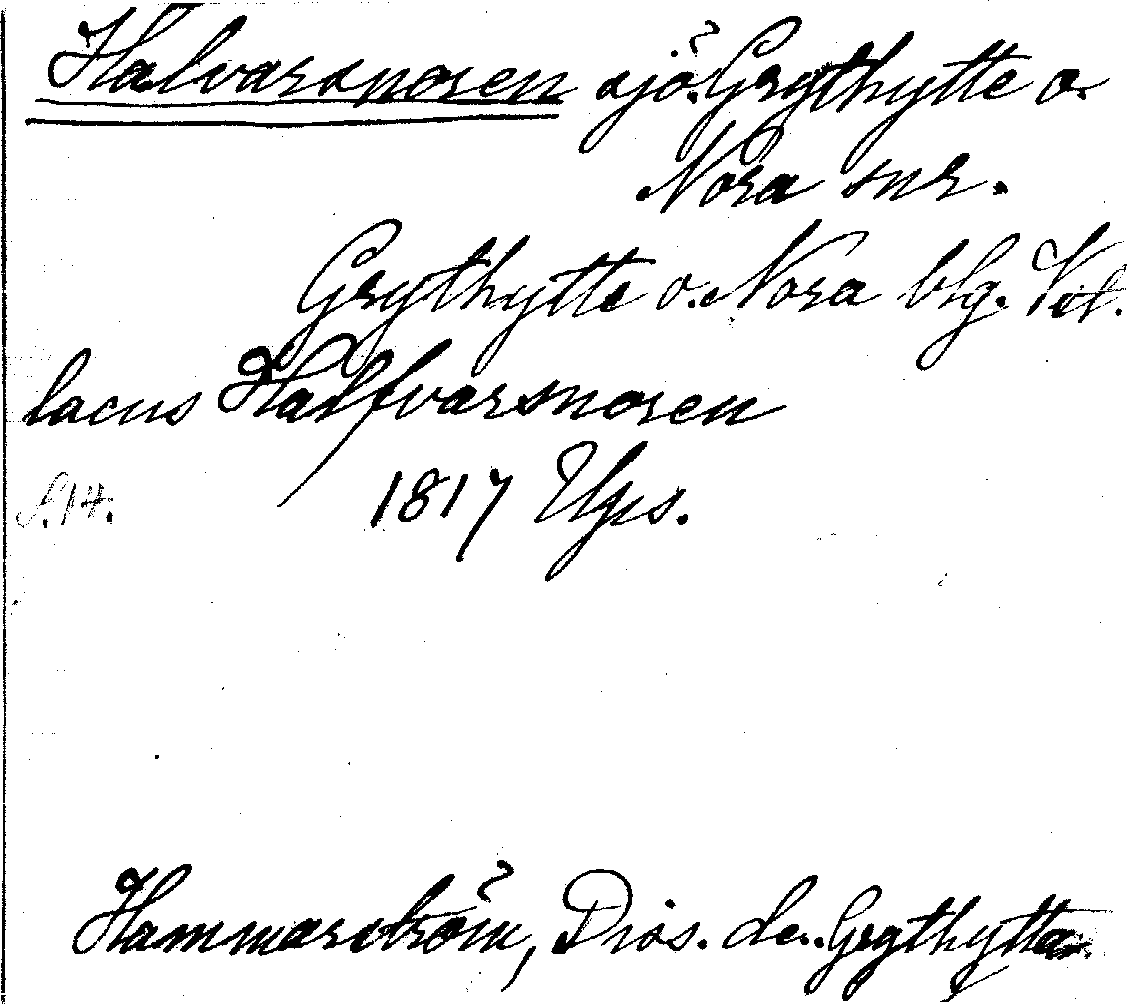 Halvarsnoren sjö. Grythytte o.
Nora snr.
Grythytte o. Nora blg. Vstl.
lacus Halfvarsnoren
s. 14. 1817 Ups.
Hammarström, Diss. de Grythyttan